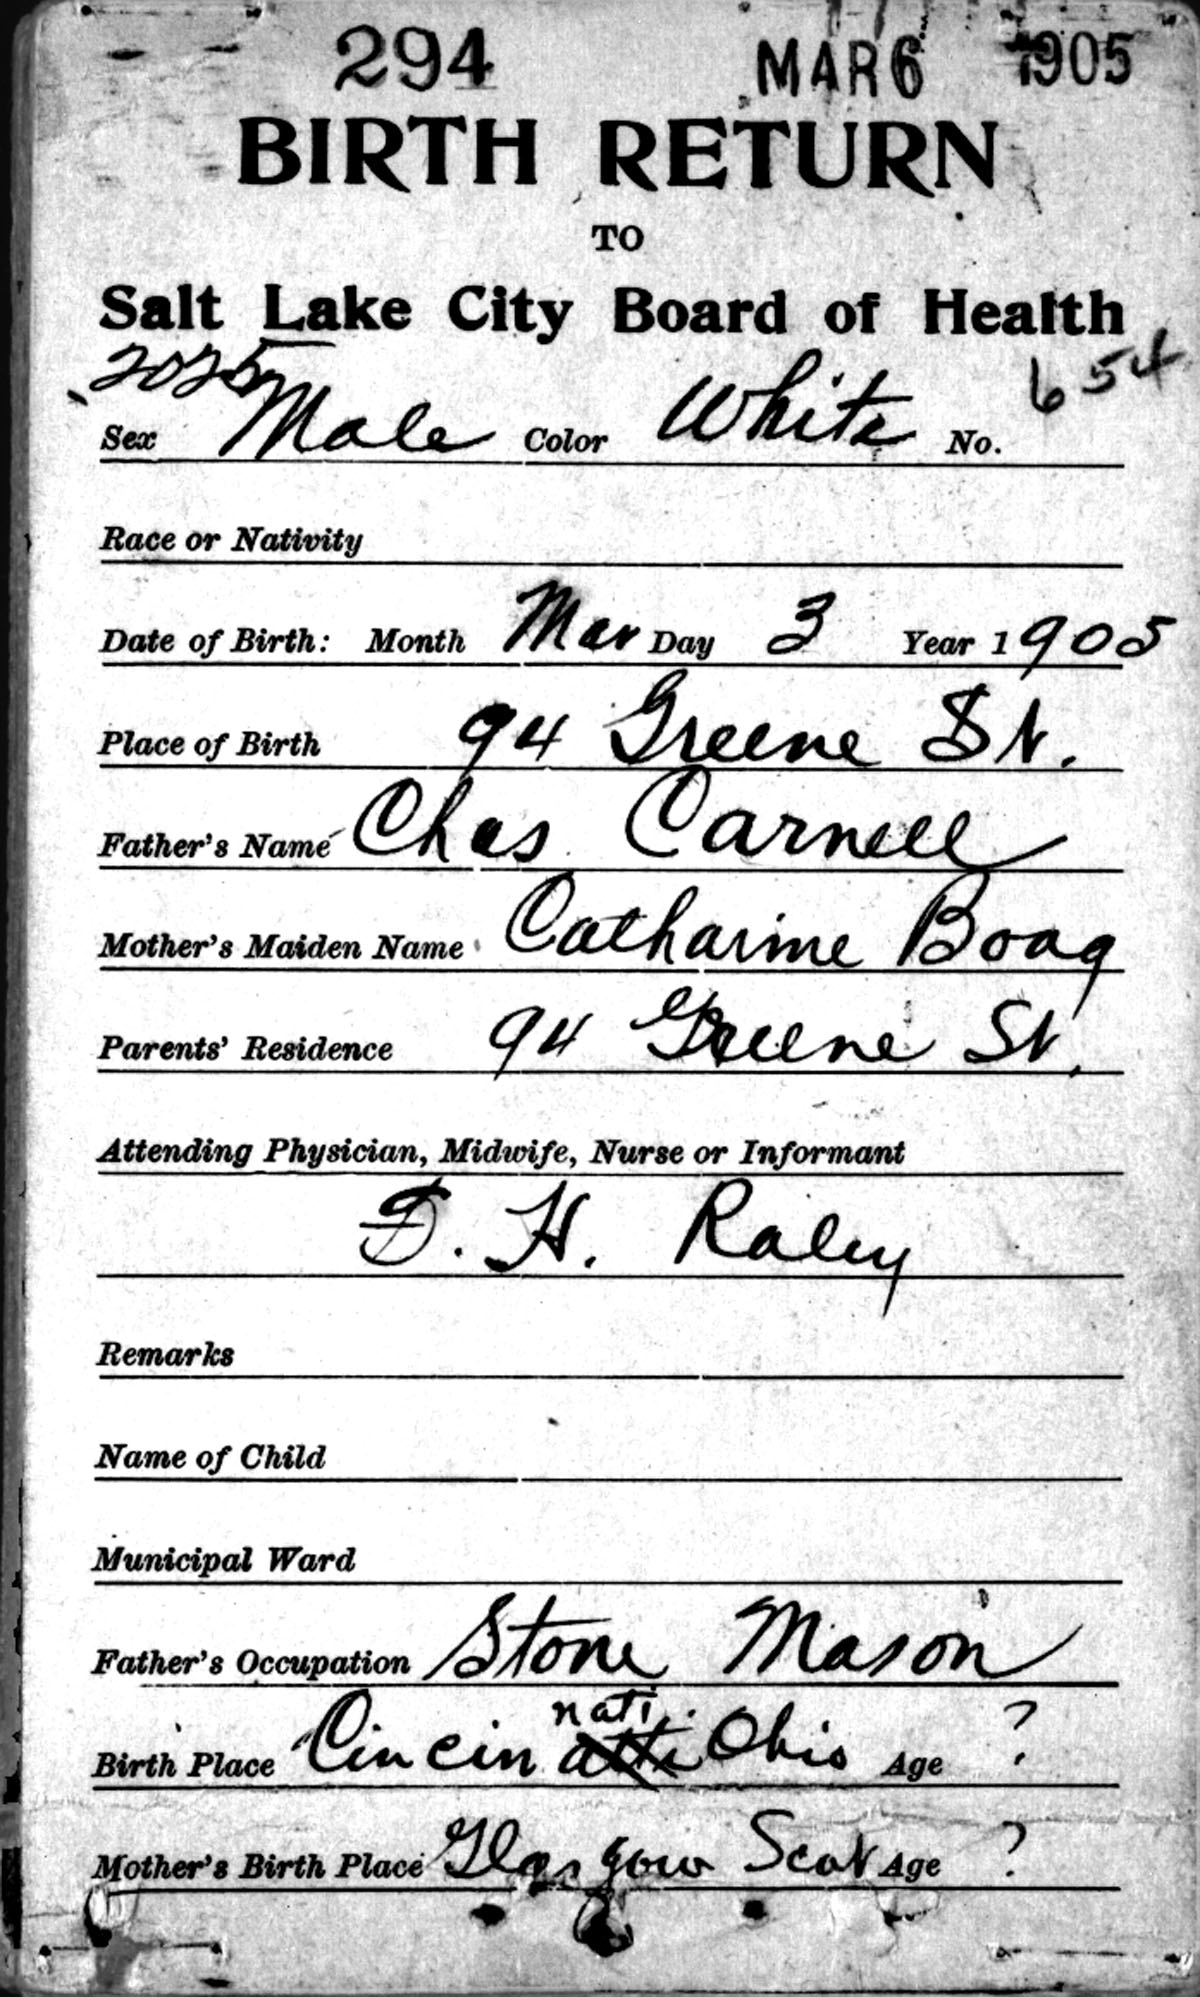 294 MAR 6 1905
BIRTH RETURN
TO
Salt Lake City Board of Health
2025 654
Sex Male Color White No.
Race or Nativity
Date of Birth: Month Mar Day 3 Year 1905
Place of Birth 94 Greene St.
Father's Name Chas Carnell
Mother's Maiden Name Catharine Boag
Parents' Residence 94 Greene St.
Attending Physician, Midwife, Nurse or Informant
H. Raley
Remarks
Name of Child
Municipal Ward
Father's Occupation Stone Mason
nati
Birth Place Cincin atti Ohio Age ?
Mother's Birth Place Glasgow Scot Age ?